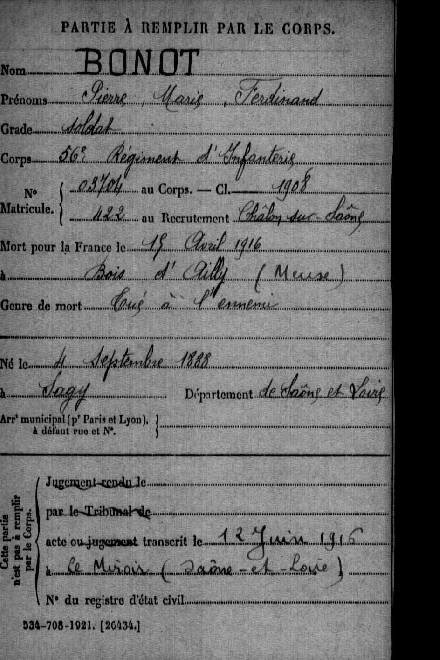 PARTIE À REMPLIR PAR LE CORPS.
Nom BONOT
Prénoms Pierre, Marie, Ferdinand
Grade soldat
Corps 56e Régiment d'Infanterie
N° Matricule. { 03704 au Corps. — Cl. 1908
422 au Recrutement Châlon-sur-Saône
Mort pour la France le 15 Avril 1916
à Bois d'Ailly (Meuse)
Genre de mort Tué à l'ennemi
Né le 4 Septembre 1888
à Sagy Département de Saône et Loire
Arrt municipal (pr Paris et Lyon), à défaut rue et N°. }
Cette partie n'est pas à remplir par le Corps.
Jugement rendu le
par le Tribunal de
acte ou jugement transcrit le 12 Juin 1916
à Le Miroir (Saône-et-Loire)
N° du registre d'état civil
534-708-1921. [26434.]